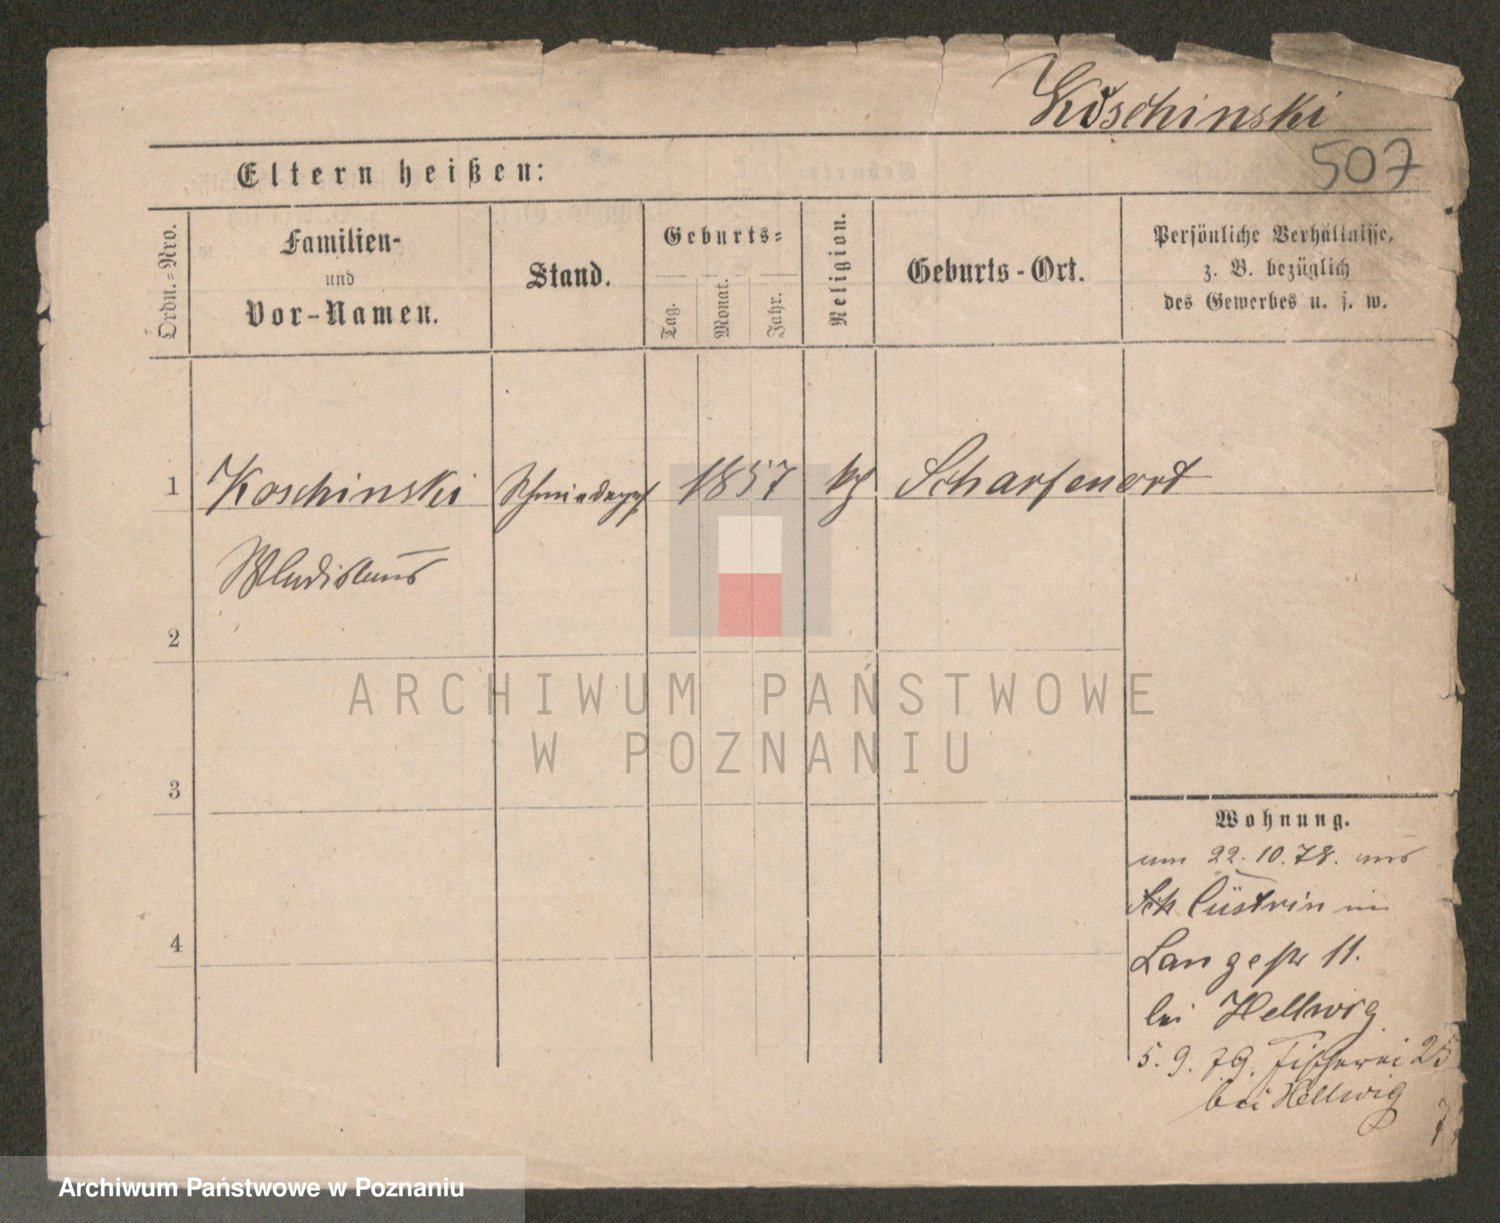 Koschinski
507
Eltern heißen:
Ordn.-Nro.
Familien-
und
Vor-Namen.
Stand.
Geburts-
Tag.
Monat.
Jahr.
Religion.
Geburts-Ort.
Persönliche Verhältnisse,
z. B. bezüglich
des Gewerbes u. s. w.
1 Koschinski 1857 Scharfenort
Wladislaus
2
3
4
Wohnung.
22.10.78. aus
Cüstrin in
Langestr 11.
bei Hellwig
5.9.79. Fischerei 25
bei Hellwig
ARCHIWUM PAŃSTWOWE
W POZNANIU
Archiwum Państwowe w Poznaniu